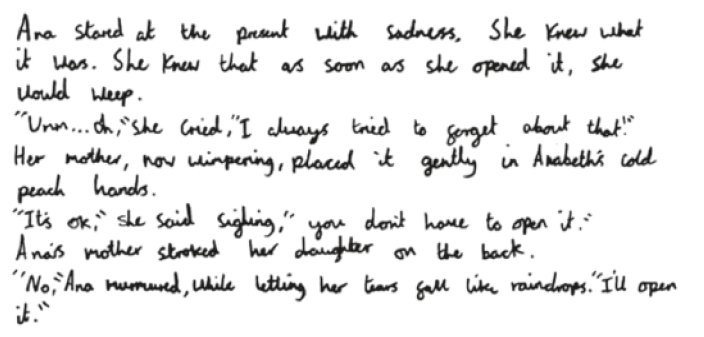 Ana stared at the present with sadness. She knew what
it was. She knew that as soon as she opened it, she
would weep.
"Umm... Oh," she cried, "I always tried to forget about that!"
Her mother, now winpering, placed it gently in Anabeth's cold
peach hands.
"It's ok," she said sighing, "you don't have to open it."
Ana's mother stroked her daughter on the back.
"No," Ana murmured, while letting her tears fall like raindrops. "I'll open
it."